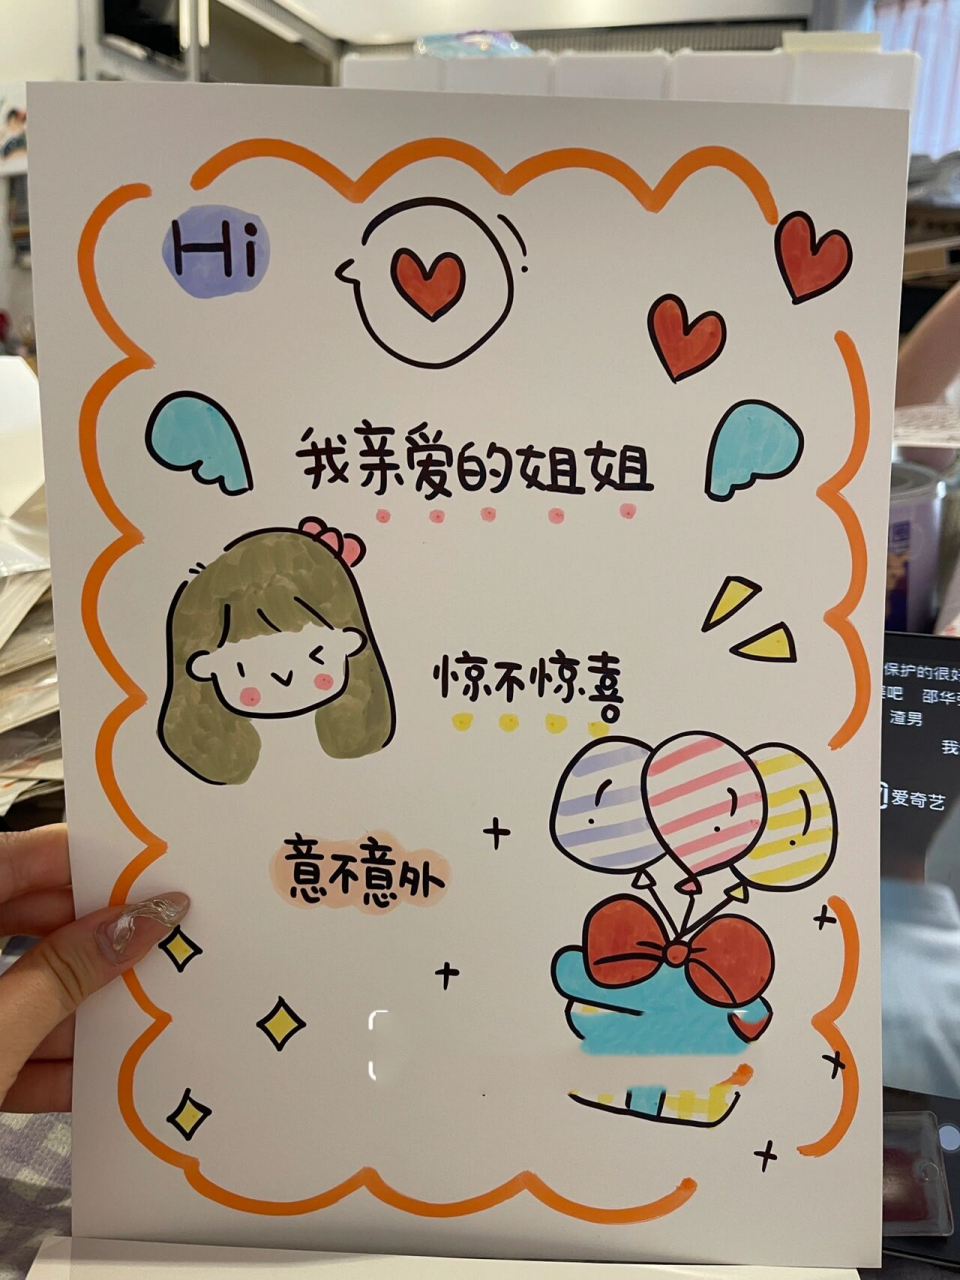 Hi
我亲爱的姐姐
惊不惊喜
意不意外
保护的很好
吧 邵华
渣男
我
爱奇艺